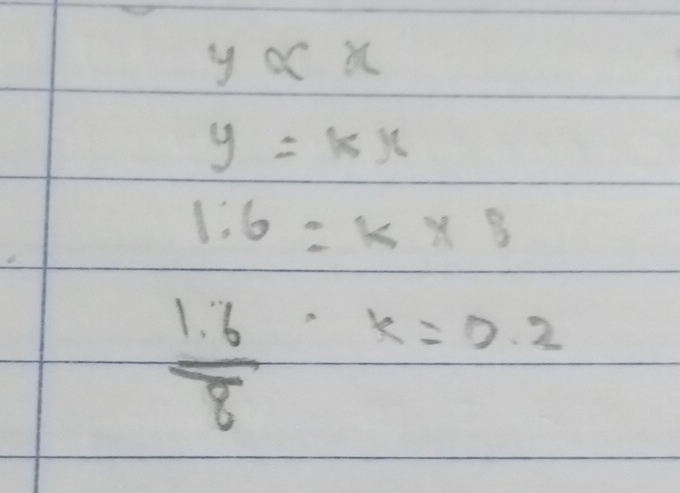 y ∝ x
y = kx
1.6 = k × 8
1.6/8 . k = 0.2